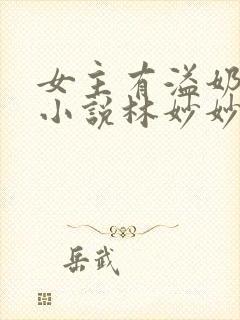 女主有溢奶
小说林妙妙
岳武